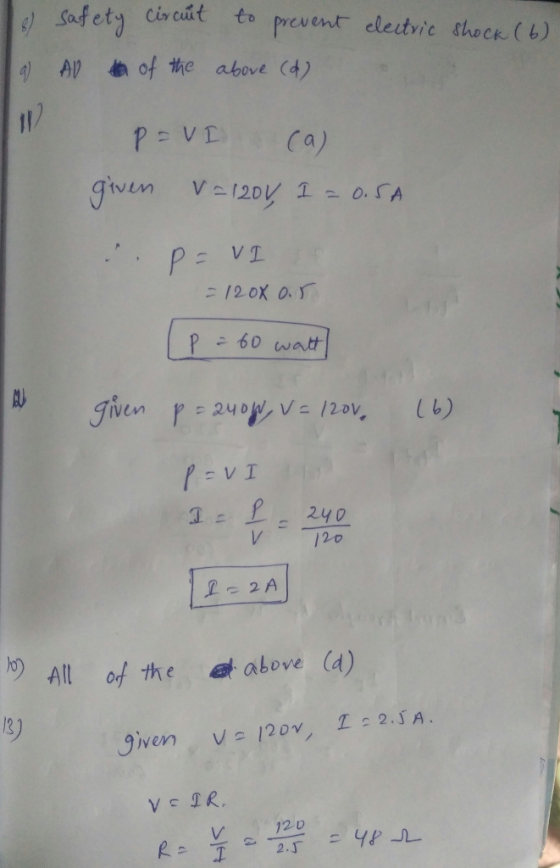 8) Safety circuit to prevent electric shock (b)
9) All of the above (d)
11)
P = VI (a)
given V = 120V, I = 0.5A
∴ P = VI
= 120 X 0.5
P = 60 watt
given P = 240W, V = 120V. (b)
P = VI
I = P/V = 240/120
I = 2A
10) All of the above (d)
13)
given V = 120V, I = 2.5A.
V = IR.
R = V/I = 120/2.5 = 48 Ω